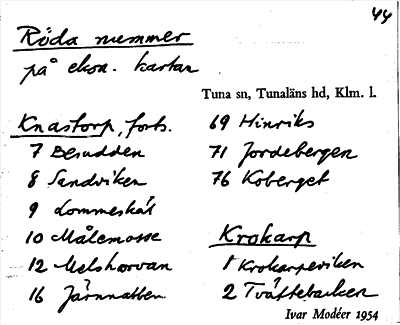 44
Röda nummer
på ekon. kartan
Tuna sn, Tunaläns hd, Klm. l.
Knastorp, forts.
7 Besudden
8 Sandviken
9 Lommeskål
10 Målemosse
12 Melshorvan
16 Järnnabben
69 Hinriks
71 Jordebergen
76 Koberget
Krokarp
1 Krokarpeviken
2 Tvättebacken
Ivar Modéer 1954